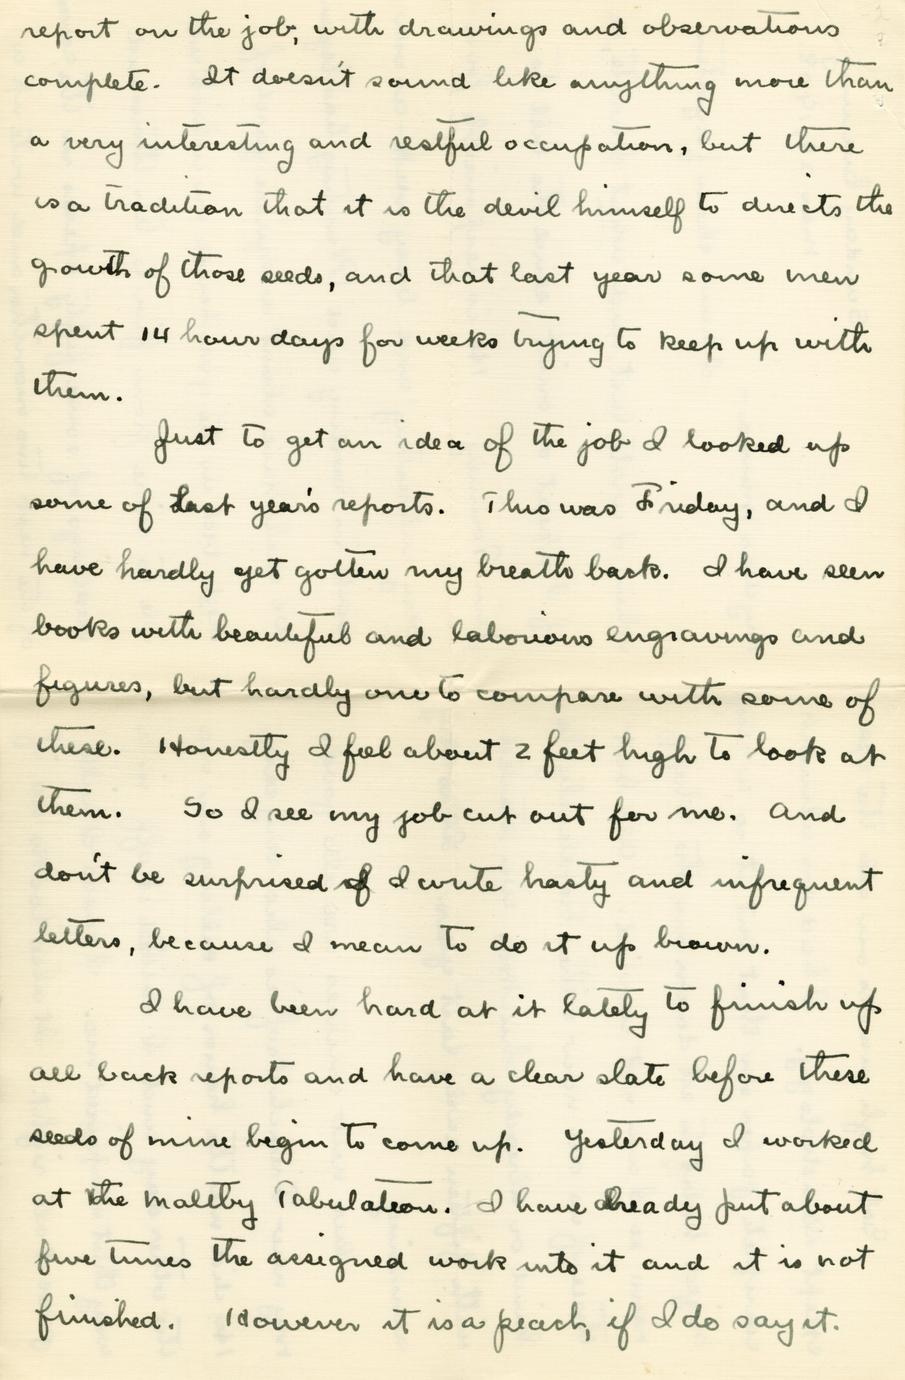 report on the job, with drawings and observations
complete. It doesn't sound like anything more than
a very interesting and restful occupation, but there
is a tradition that it is the devil himself to directs the
growth of those seeds, and that last year some men
spent 14 hour days for weeks trying to keep up with
them.
Just to get an idea of the job I looked up
some of last year's reports. This was Friday, and I
have hardly yet gotten my breath back. I have seen
books with beautiful and laborious engravings and
figures, but hardly one to compare with some of
these. Honestly I feel about 2 feet high to look at
them. So I see my job cut out for me. And
don't be surprised if I write hasty and infrequent
letters, because I mean to do it up brown.
I have been hard at it lately to finish up
all back reports and have a clear slate before these
seeds of mine begin to come up. Yesterday I worked
at the Maltby Tabulation. I have already put about
five times the assigned work into it and it is not
finished. However it is a peach, if I do say it.